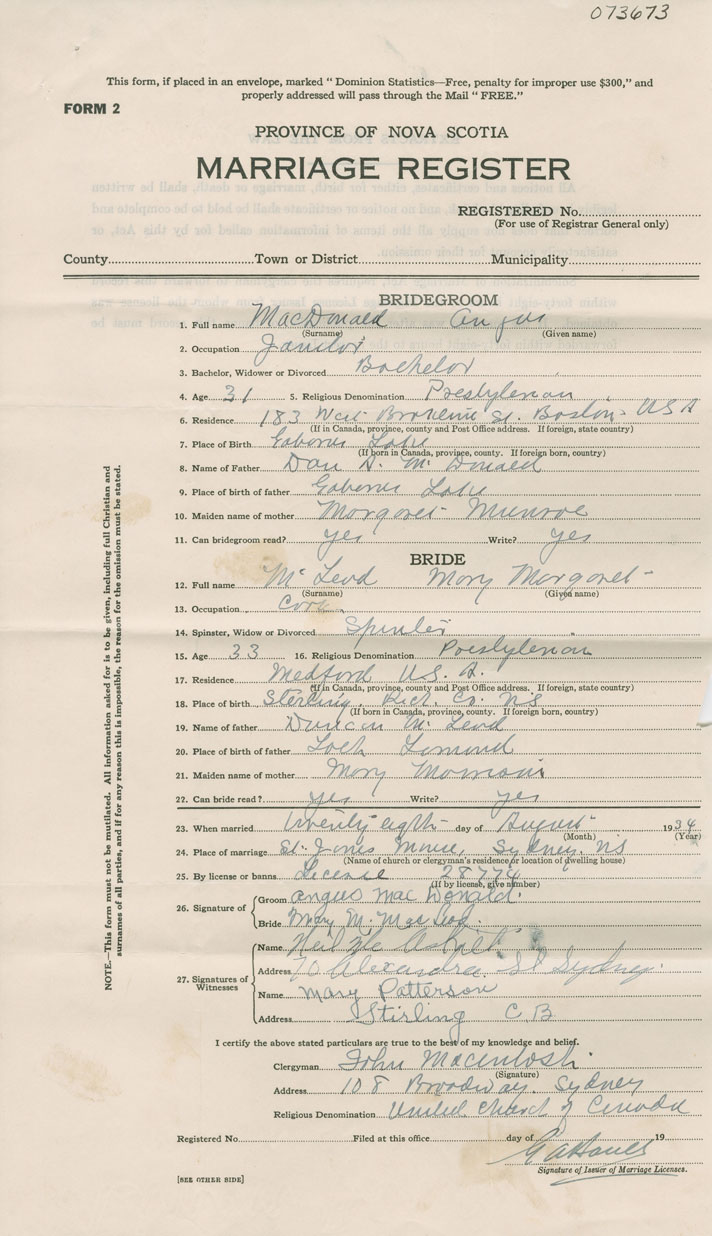 073673
This form, if placed in an envelope, marked "Dominion Statistics—Free, penalty for improper use $300," and
properly addressed will pass through the Mail "FREE."
FORM 2
PROVINCE OF NOVA SCOTIA
MARRIAGE REGISTER
REGISTERED No.
(For use of Registrar General only)
County Town or District Municipality
BRIDEGROOM
1. Full name MacDonald Angus
(Surname) (Given name)
2. Occupation Janitor
3. Bachelor, Widower or Divorced Bachelor
4. Age 31 5. Religious Denomination Presbyterian
6. Residence 183 West St. Boston USA
(If in Canada, province, county and Post Office address. If foreign, state country)
7. Place of Birth Gabarus Lake
(If born in Canada, province, county. If foreign born, country)
8. Name of Father Dan A. McDonald
9. Place of birth of father Gabarus Lake
10. Maiden name of mother Margaret Munroe
11. Can bridegroom read? yes Write? yes
BRIDE
12. Full name McLeod Mary Margaret
(Surname) (Given name)
13. Occupation Cook
14. Spinster, Widow or Divorced Spinster
15. Age 33 16. Religious Denomination Presbyterian
17. Residence Medford U.S.A.
(If in Canada, province, county and Post Office address. If foreign, state country)
18. Place of birth Sterling, Rich. Co. NS
(If born in Canada, province, county. If foreign born, country)
19. Name of father Duncan McLeod
20. Place of birth of father Loch Lomond
21. Maiden name of mother Mary Morrison
22. Can bride read? yes Write? yes
23. When married twenty eighth day of August 1934
(Month) (Year)
24. Place of marriage St. James Manse, Sydney. NS
(Name of church or clergyman's residence or location of dwelling house)
25. By license or banns License 28774
(If by license, give number)
26. Signature of Groom Angus MacDonald.
Bride Mary M. MacLeod.
27. Signatures of Witnesses
Name Neil
Address 70 Alexandra St Sydney.
Name Mary Patterson
Address Stirling C.B
I certify the above stated particulars are true to the best of my knowledge and belief.
Clergyman John Macintosh
(Signature)
Address 108 Broadway. Sydney
Religious Denomination United Church of Canada
Registered No. Filed at this office day of 19
Signature of Issuer of Marriage Licenses.
[SEE OTHER SIDE]
NOTE.—This form must not be mutilated. All information asked for is to be given, including full Christian and
surnames of all parties, and if for any reason this is impossible, the reason for the omission must be stated.